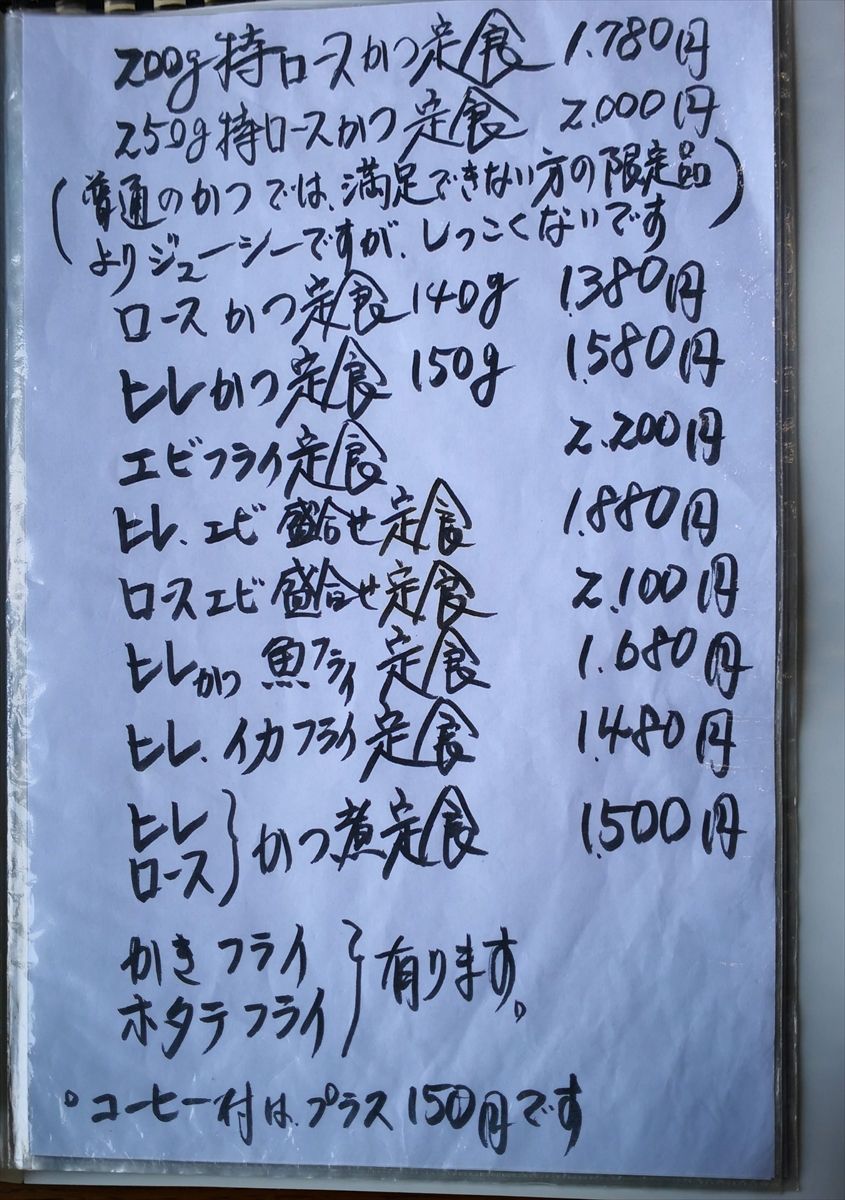 200g特ロースかつ定食 1.780円
250g特ロースかつ定食 2.000円
(普通のかつでは、満足できない方の限定品
よりジューシーですが、しっこくないです)
ロースかつ定食 140g 1.380円
ヒレかつ定食 150g 1.580円
エビフライ定食 2.200円
ヒレ、エビ 盛合せ定食 1.880円
ロースエビ 盛合せ定食 2.100円
ヒレかつ 魚フライ 定食 1.680円
ヒレ、イカフライ定食 1.480円
ヒレ
ロース
}かつ煮定食 1.500円
かきフライ
ホタテフライ
}有ります。
。コーヒー付は、プラス150円です